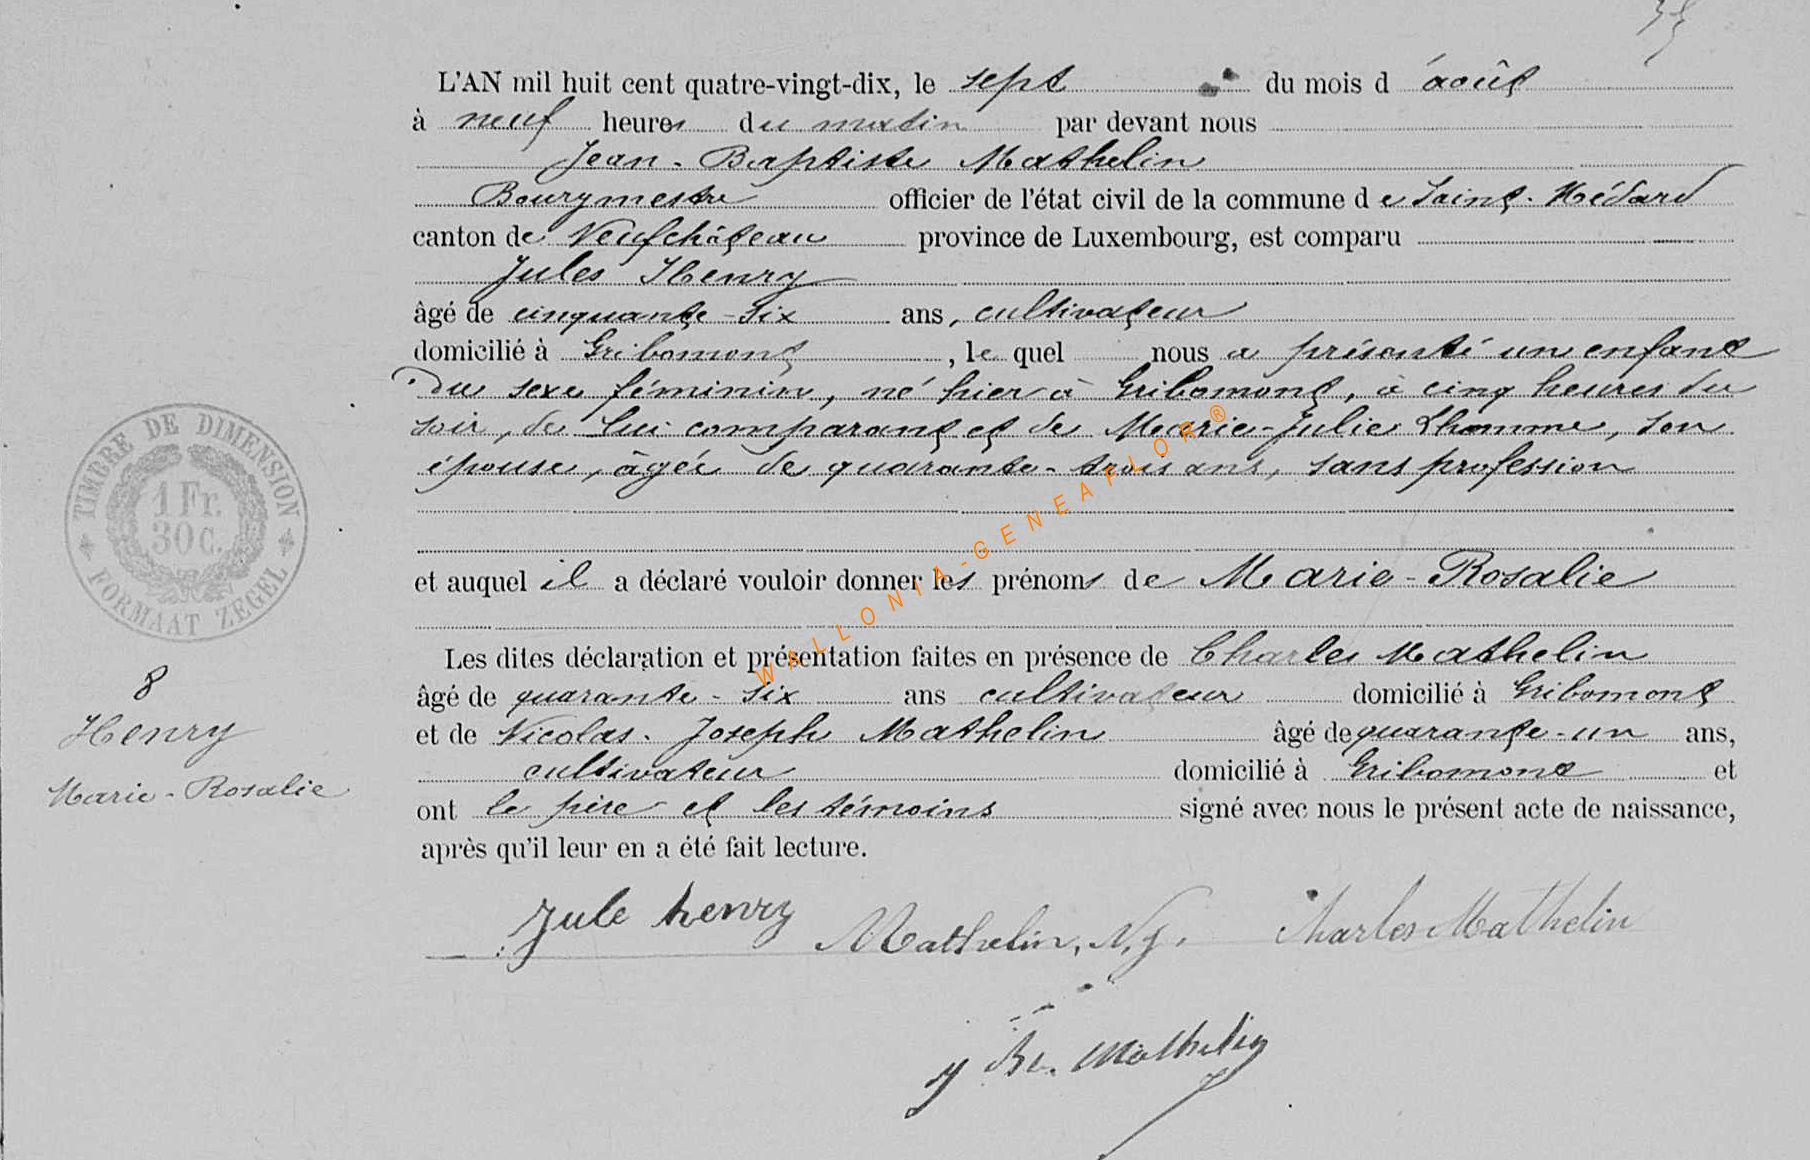 L'AN mil huit cent quatre-vingt-dix, le sept du mois d'août
à neuf heures du matin par devant nous
Jean-Baptiste Mathelin
Bourgmestre officier de l'état civil de la commune de Saint-Médard
canton de Neufchâteau province de Luxembourg, est comparu
Jules Henry
âgé de cinquante-six ans, cultivateur
domicilié à Gribomont, le quel nous a présenté un enfant
du sexe féminin, né hier à Gribomont, à cinq heures du
soir, de lui comparant et de Marie-Julie Lhomme, son
épouse, âgée de quarante-trois ans, sans profession
et auquel il a déclaré vouloir donner les prénoms de Marie-Rosalie
Les dites déclaration et présentation faites en présence de Charles Mathelin
âgé de quarante-six ans cultivateur domicilié à Gribomont
et de Nicolas-Joseph Mathelin âgé de quarante-un ans,
cultivateur domicilié à Gribomont et
ont le père et les témoins signé avec nous le présent acte de naissance,
après qu'il leur en a été fait lecture.
Jule henry Mathelin, N.J. Charles Mathelin
J Bte. Mathelin
TIMBRE DE DIMENSION
1 Fr.
30 C.
FORMAAT ZEGEL
8
Henry
Marie-Rosalie
WALLONIA-GENEAFLOR®